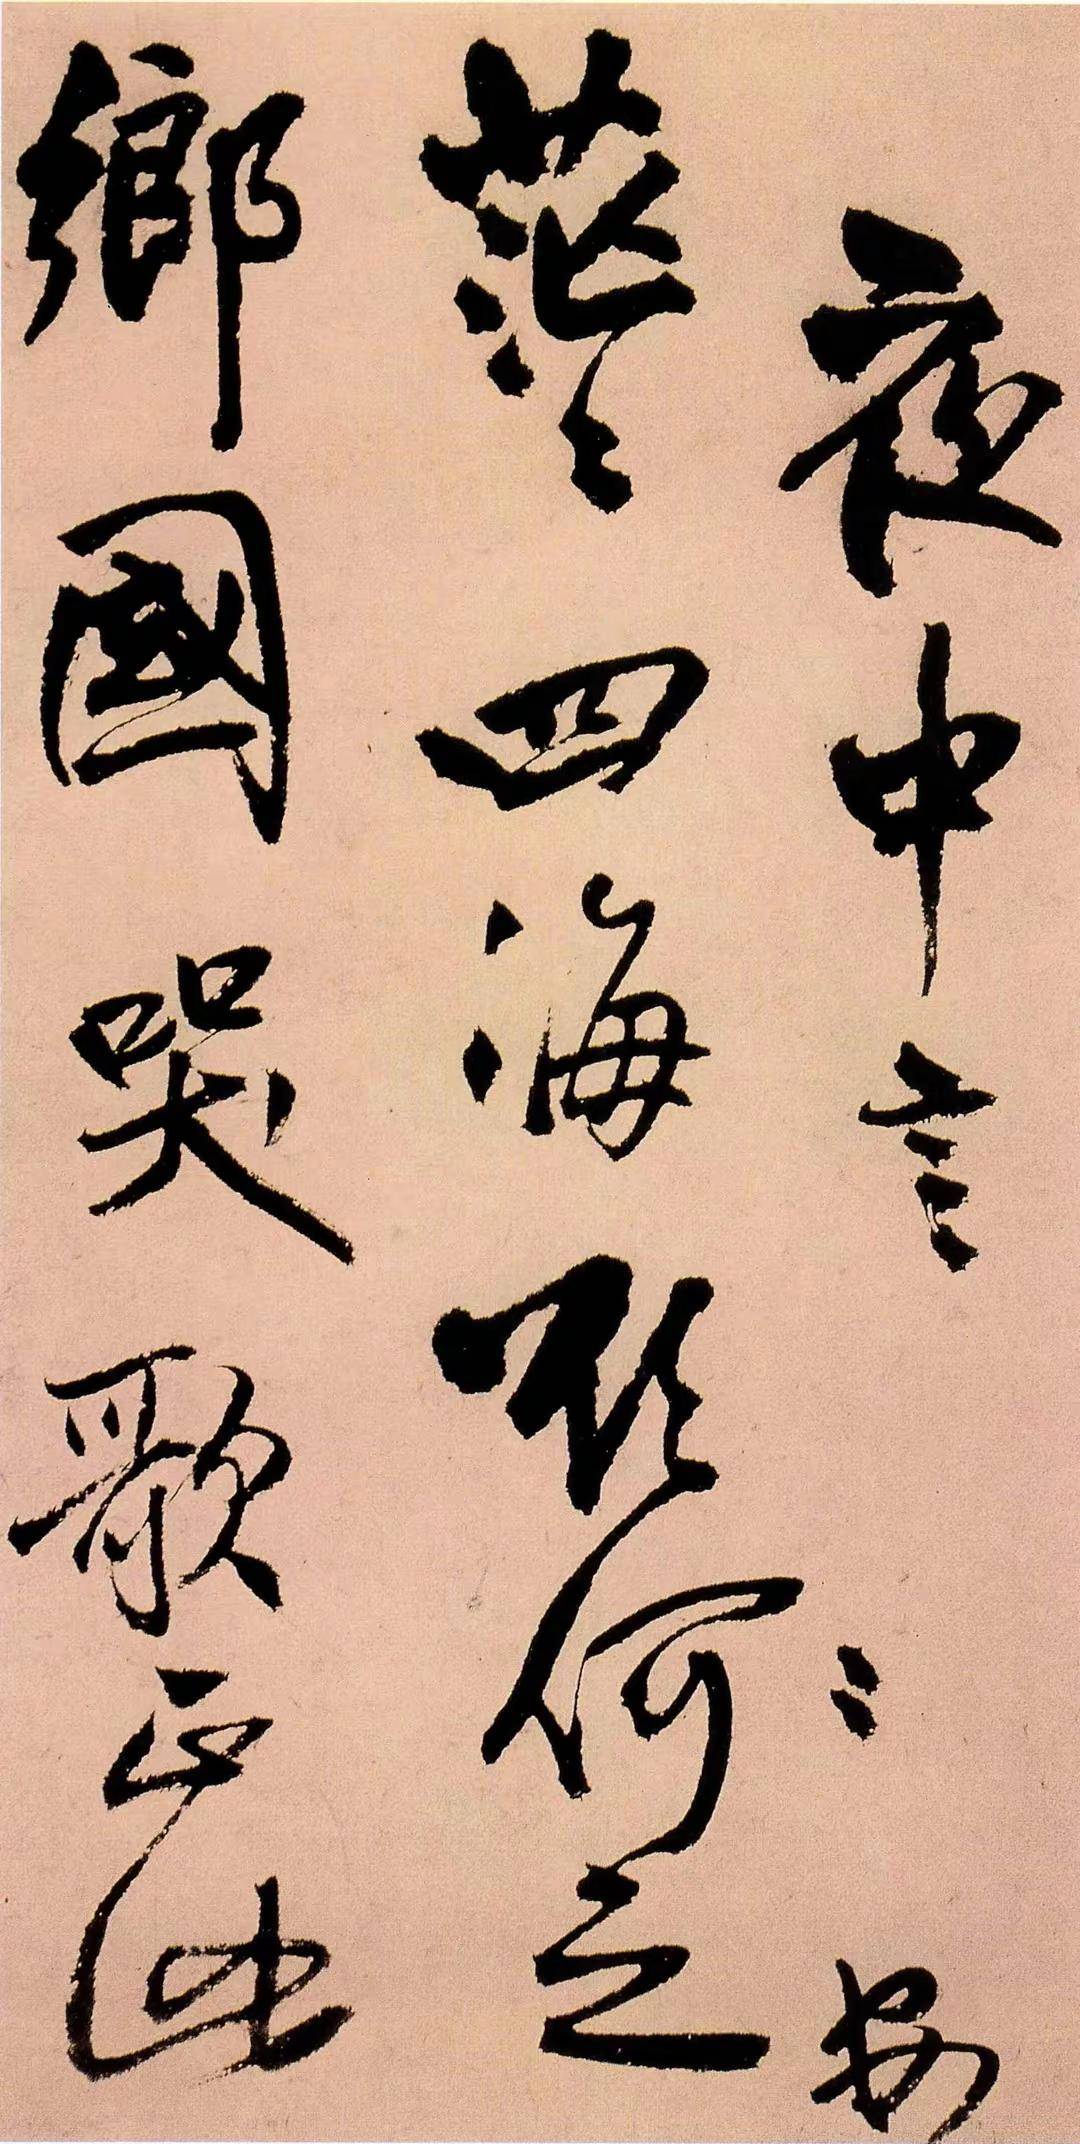 夜中言
茫〻四海何之
鄉國哭歌正此